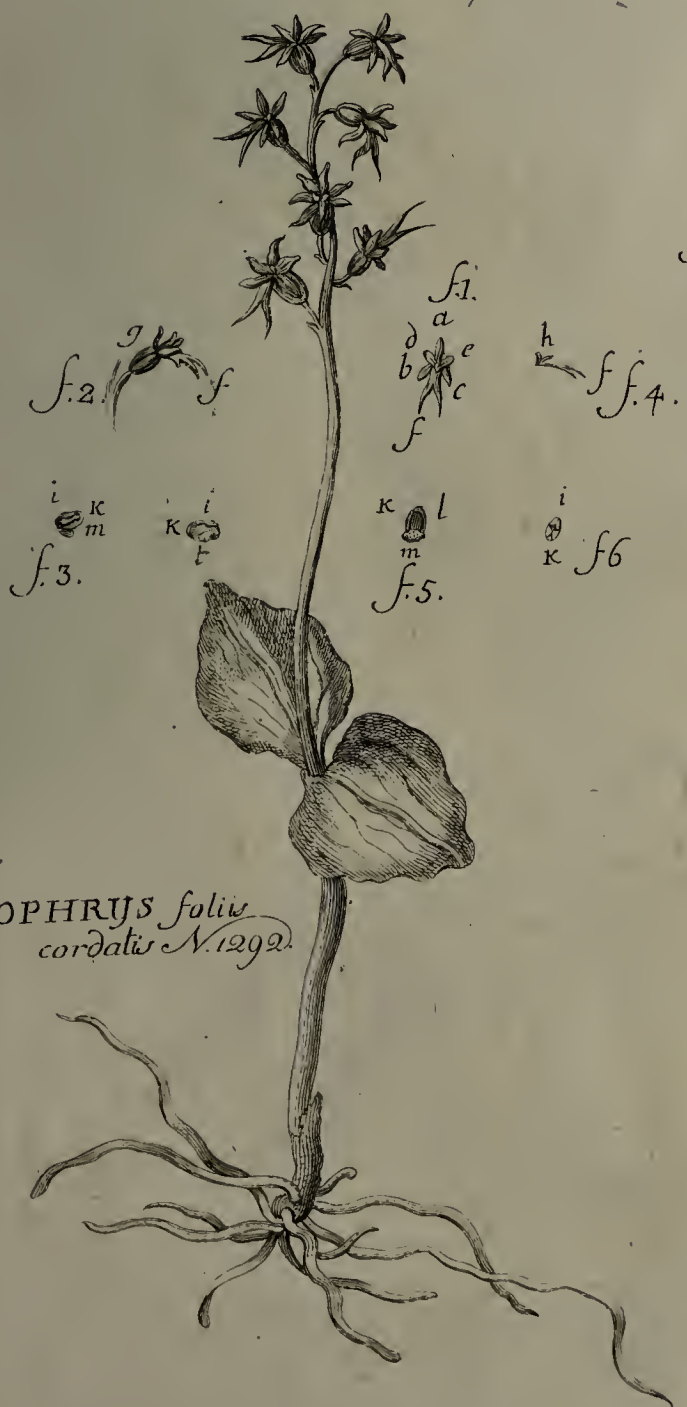 f.1.
a
d
e
b
c
f
g
f.2.
f
h
f
f.4.
i
K
m
f.3.
i
K
t
K
l
m
f.5.
i
K
f6
OPHRYS foliis
cordatis N. 1292.